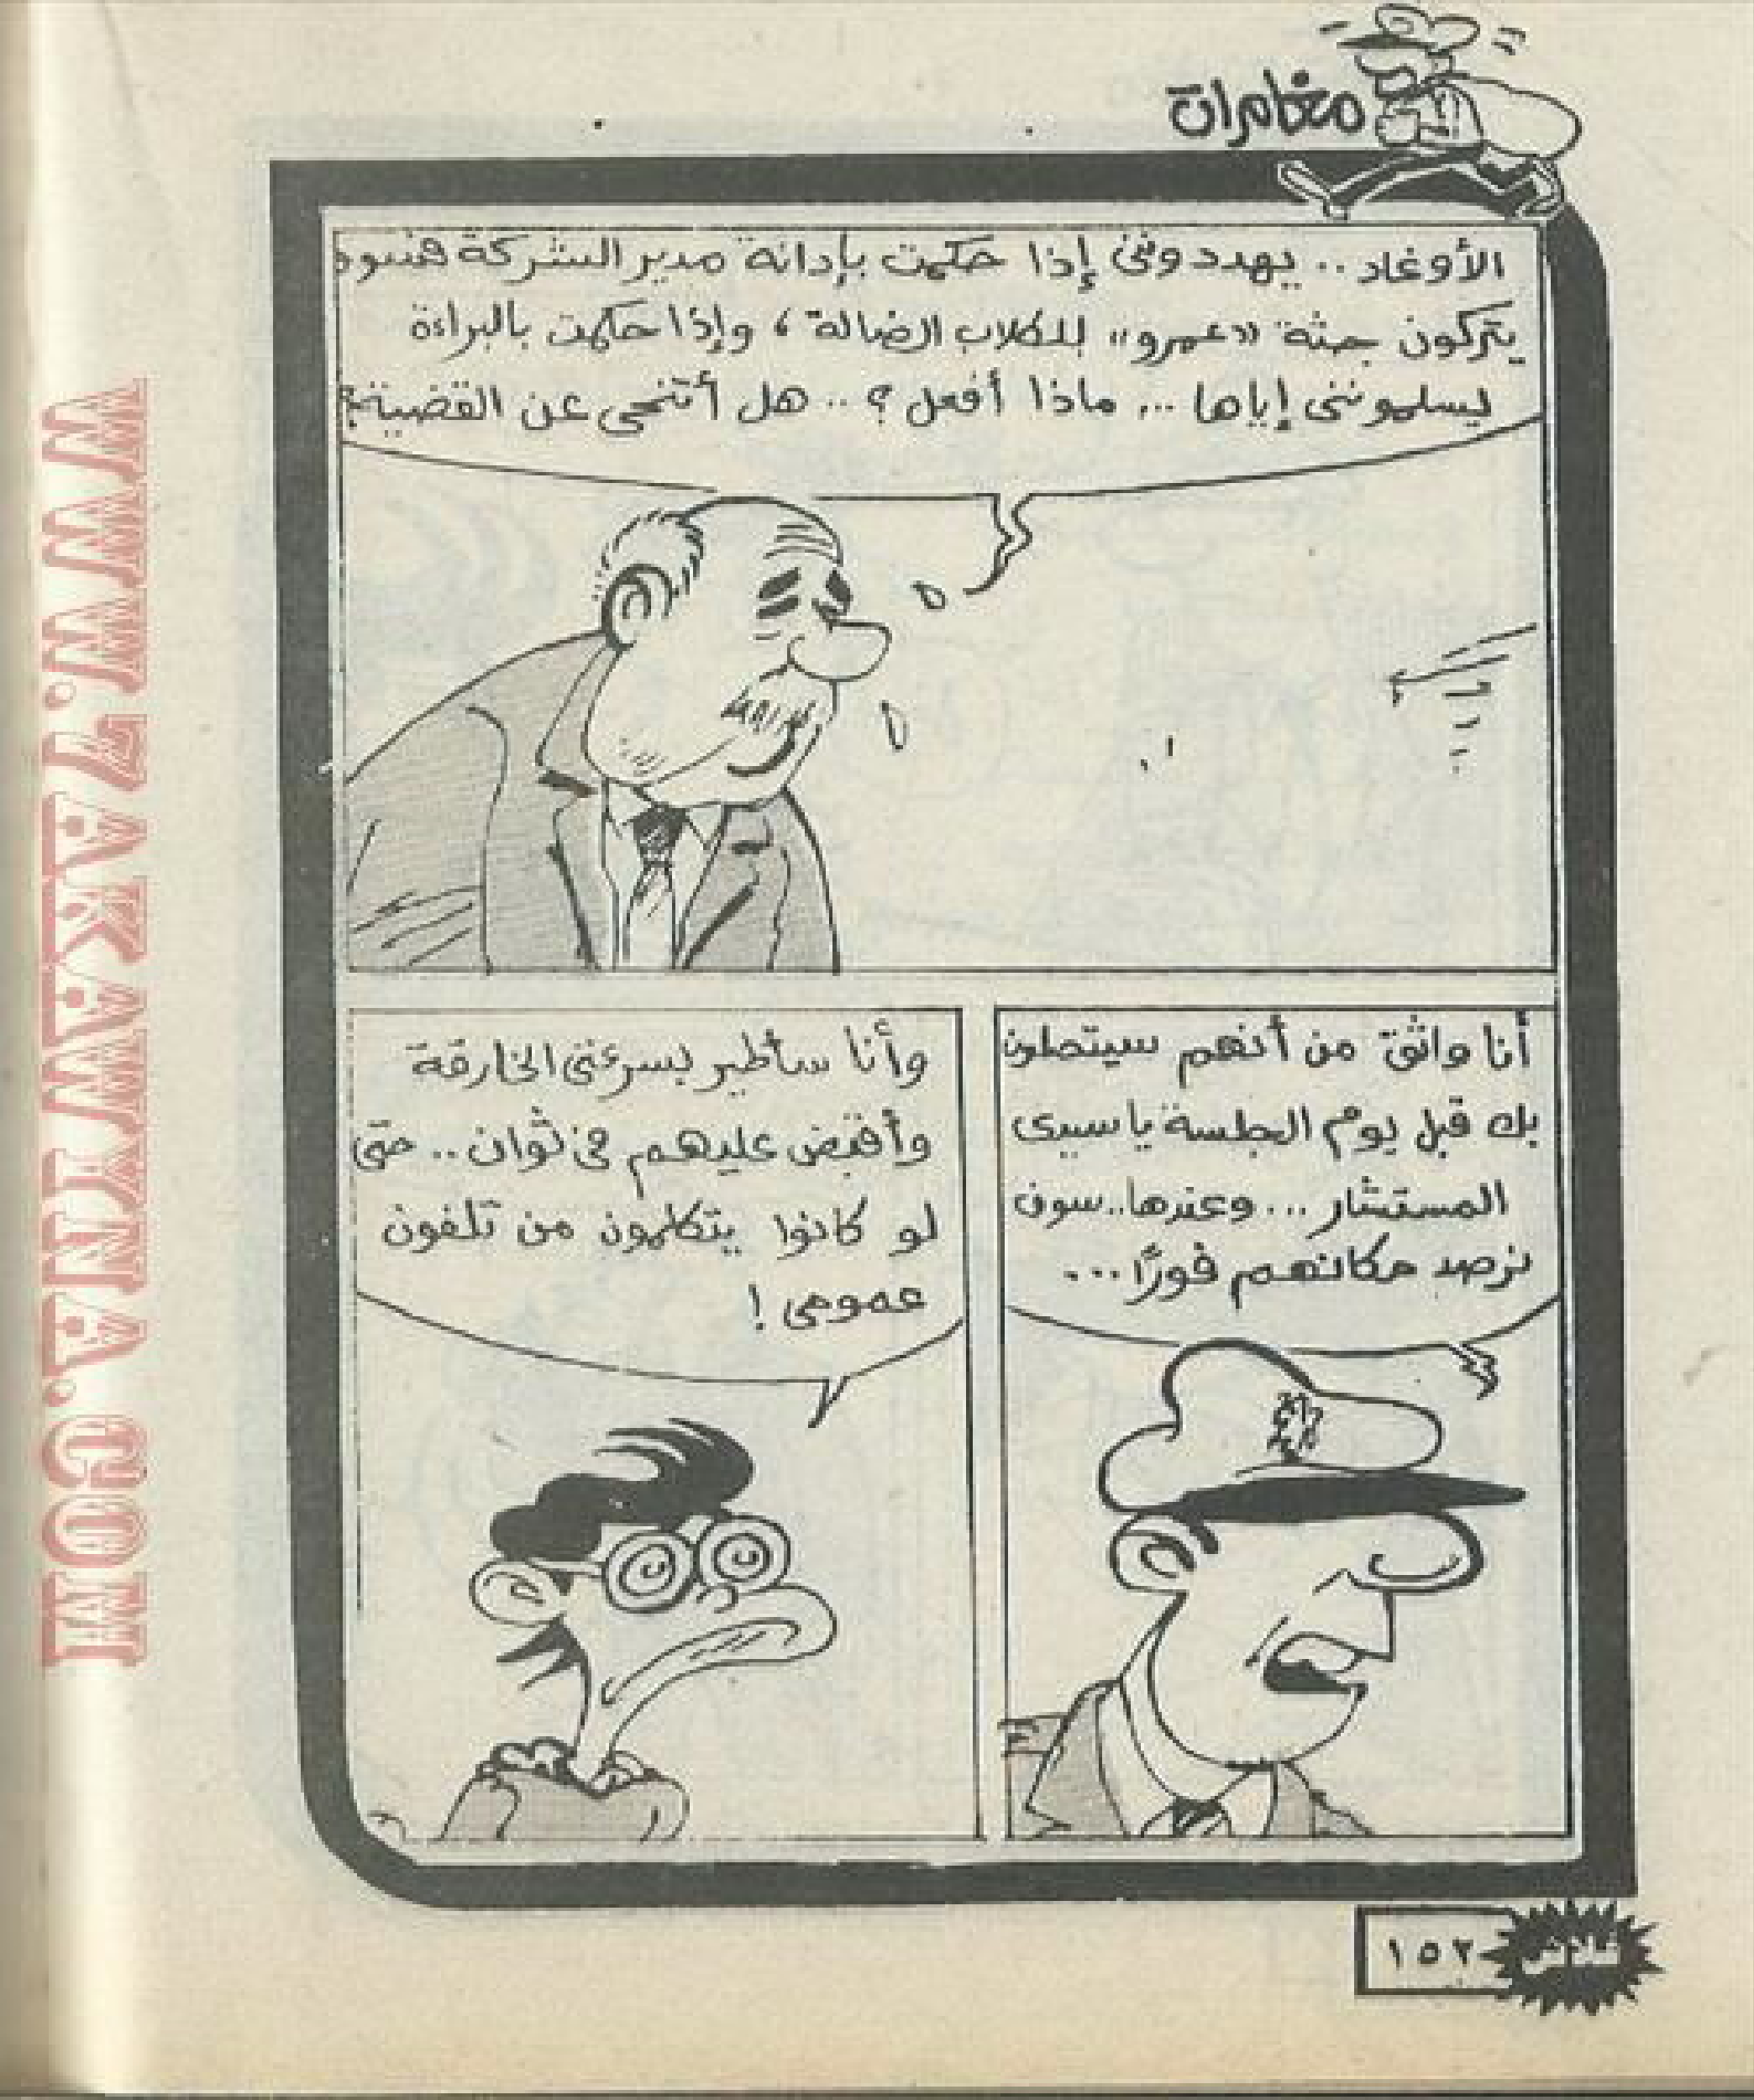 مغامرات
الأوغاد .. يهددوننى إذا حكمت بإدانة مدير الشركة فسوف
يتركون جثة «عمرو» للكلاب الضالة ، وإذا حكمت بالبراءة
يسلموننى إياها ... ماذا أفعل ؟ .. هل أتنحى عن القضية ؟
أنا واثق من أنهم سيتصلون
بك قبل يوم الجلسة يا سيدى
المستشار ... وعندها .. سوف
نرصد مكانهم فورًا ...
وأنا سأطير بسرعتى الخارقة
وأقبض عليهم فى ثوان .. حتى
لو كانوا يتكلمون من تلفون
عمومى !
١٥٢
فلاش
WWW.7AKAWINA.COM